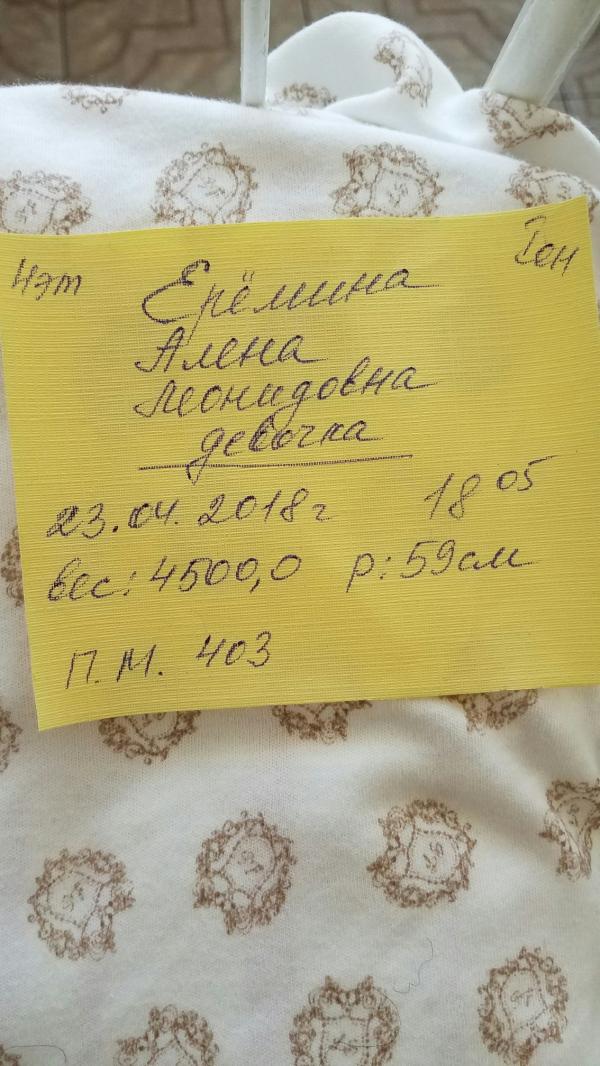 4эт
Iон
Ерёмина
Алена
Леонидовна
девочка
23.04.2018г 18 05
вес: 4500,0 р: 59см
П.М. 403